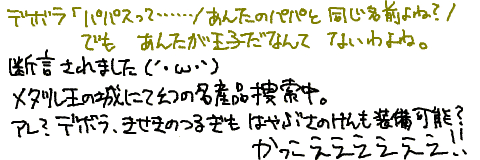 デボラ「パパスって……！あんたのパパと同じ名前よね？！
でも あんたが王子だなんて ないわよね。
断言されました(´・ω・`)
メタル王の城にて幻の名産品捜索中。
アレ？デボラ、きせきのつるぎも はやぶさのけんも装備可能？
かっこええええええ!!